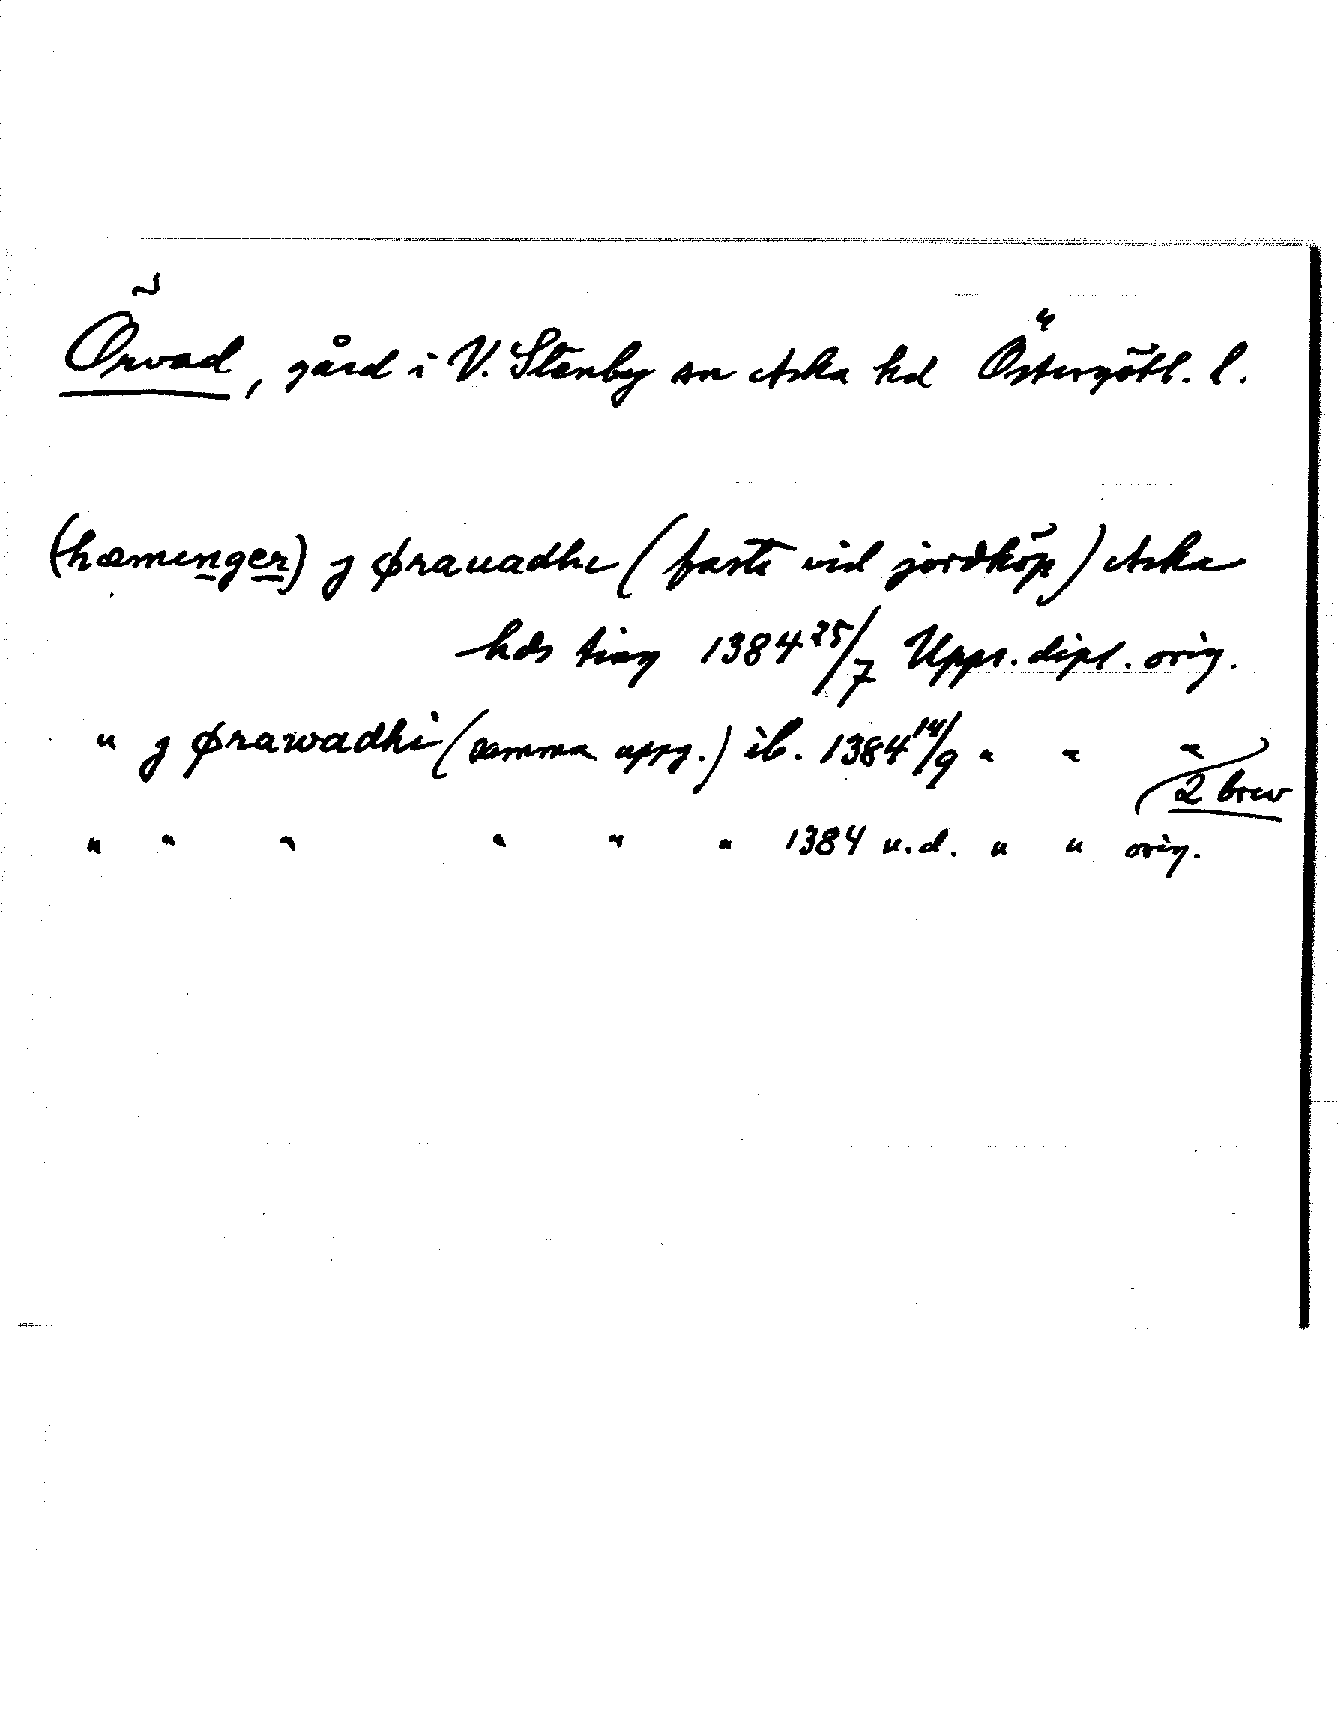 Örvad, gård i V. Stenby sn Aska hd Östergötl. l.
(hæmenger) j ørauadhe (faste vid jordköp) Aska
hds ting 1384 25/7 Upps. dipl. orig.
" j ørawadhi (samma uppg.) ib. 1384 14/9 " " "
2 brev
" " " " " " 1384 u.d. " " orig.